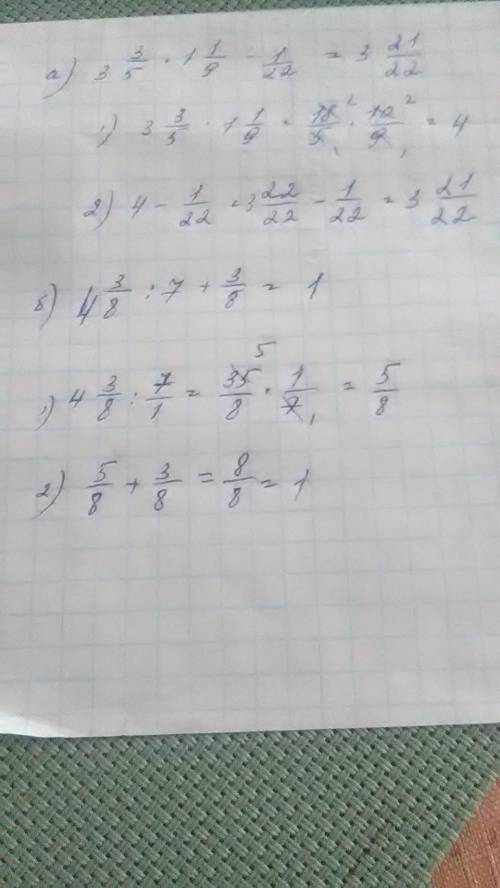 а) 3 3/5 · 1 1/9 - 1/22 = 3 21/22
1) 3 3/5 · 1 1/9 = 18/5 · 10/9 = 4
2) 4 - 1/22 = 3 22/22 - 1/22 = 3 21/22
б) 4 3/8 : 7 + 3/8 = 1
1) 4 3/8 : 7/1 = 35/8 · 1/7 = 5/8
2) 5/8 + 3/8 = 8/8 = 1